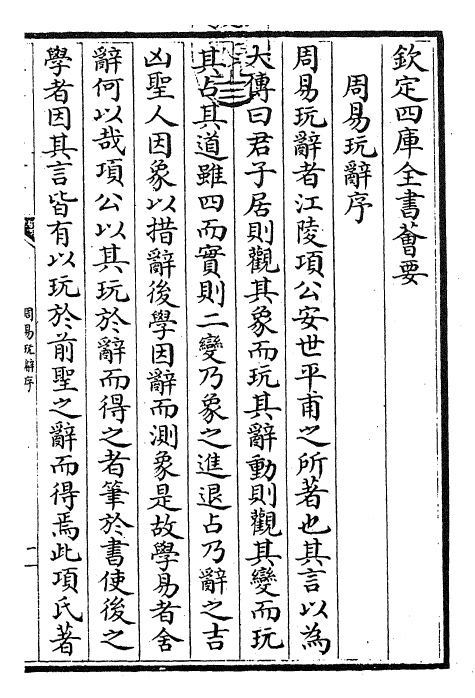 欽定四庫全書薈要
周易玩辭序
周易玩辭者江陵項公安世平甫之所著也其言以為
大傳曰君子居則觀其象而玩其辭動則觀其變而玩
其占其道雖四而實則二變乃象之進退占乃辭之吉
凶聖人因象以措辭後學因辭而測象是故學易者舍
辭何以哉項公以其玩於辭而得之者筆於書使後之
學者因其言皆有以玩於前聖之辭而得焉此項氏著
周易玩辭序
一